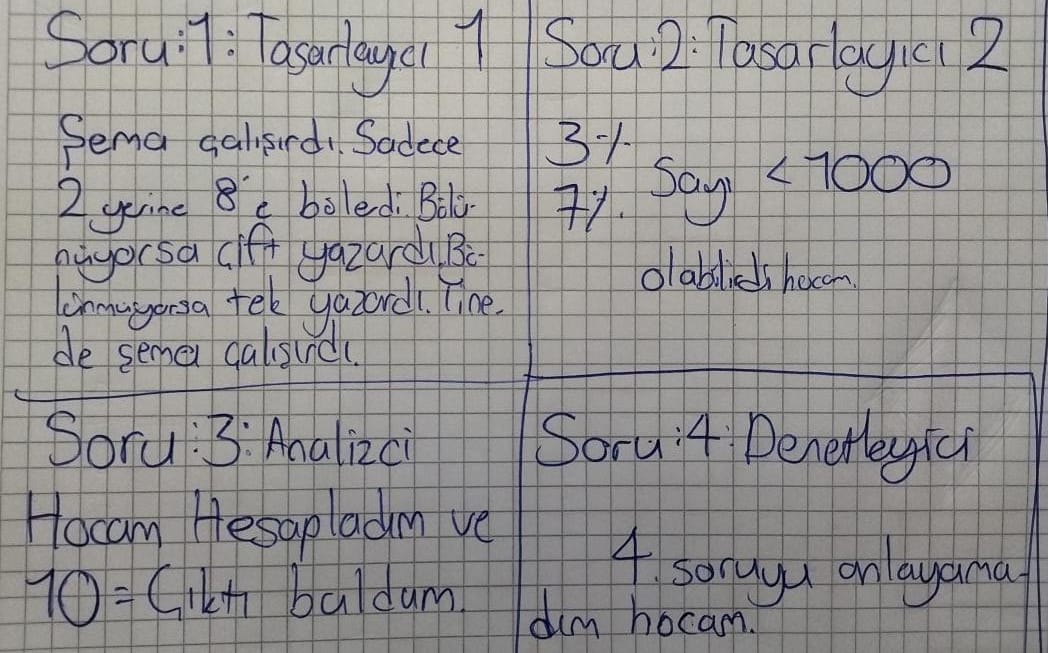 Soru:1: Tasarlayıcı 1
Şema çalışırdı. Sadece
2 yerine 8'e böledi. Bölü-
nüyorsa çift yazardı. Bö-
lünmüyorsa tek yazardı. Yine.
de şema çalışırdı.
Soru:2: Tasarlayıcı 2
3%
7%. Sayı < 1000
olabilirdi hocam.
Soru:3: Analizci
Hocam Hesapladım ve
10 = Çıktı buldum.
Soru:4: Denetleyici
4. soruyu anlayama-
dım hocam.